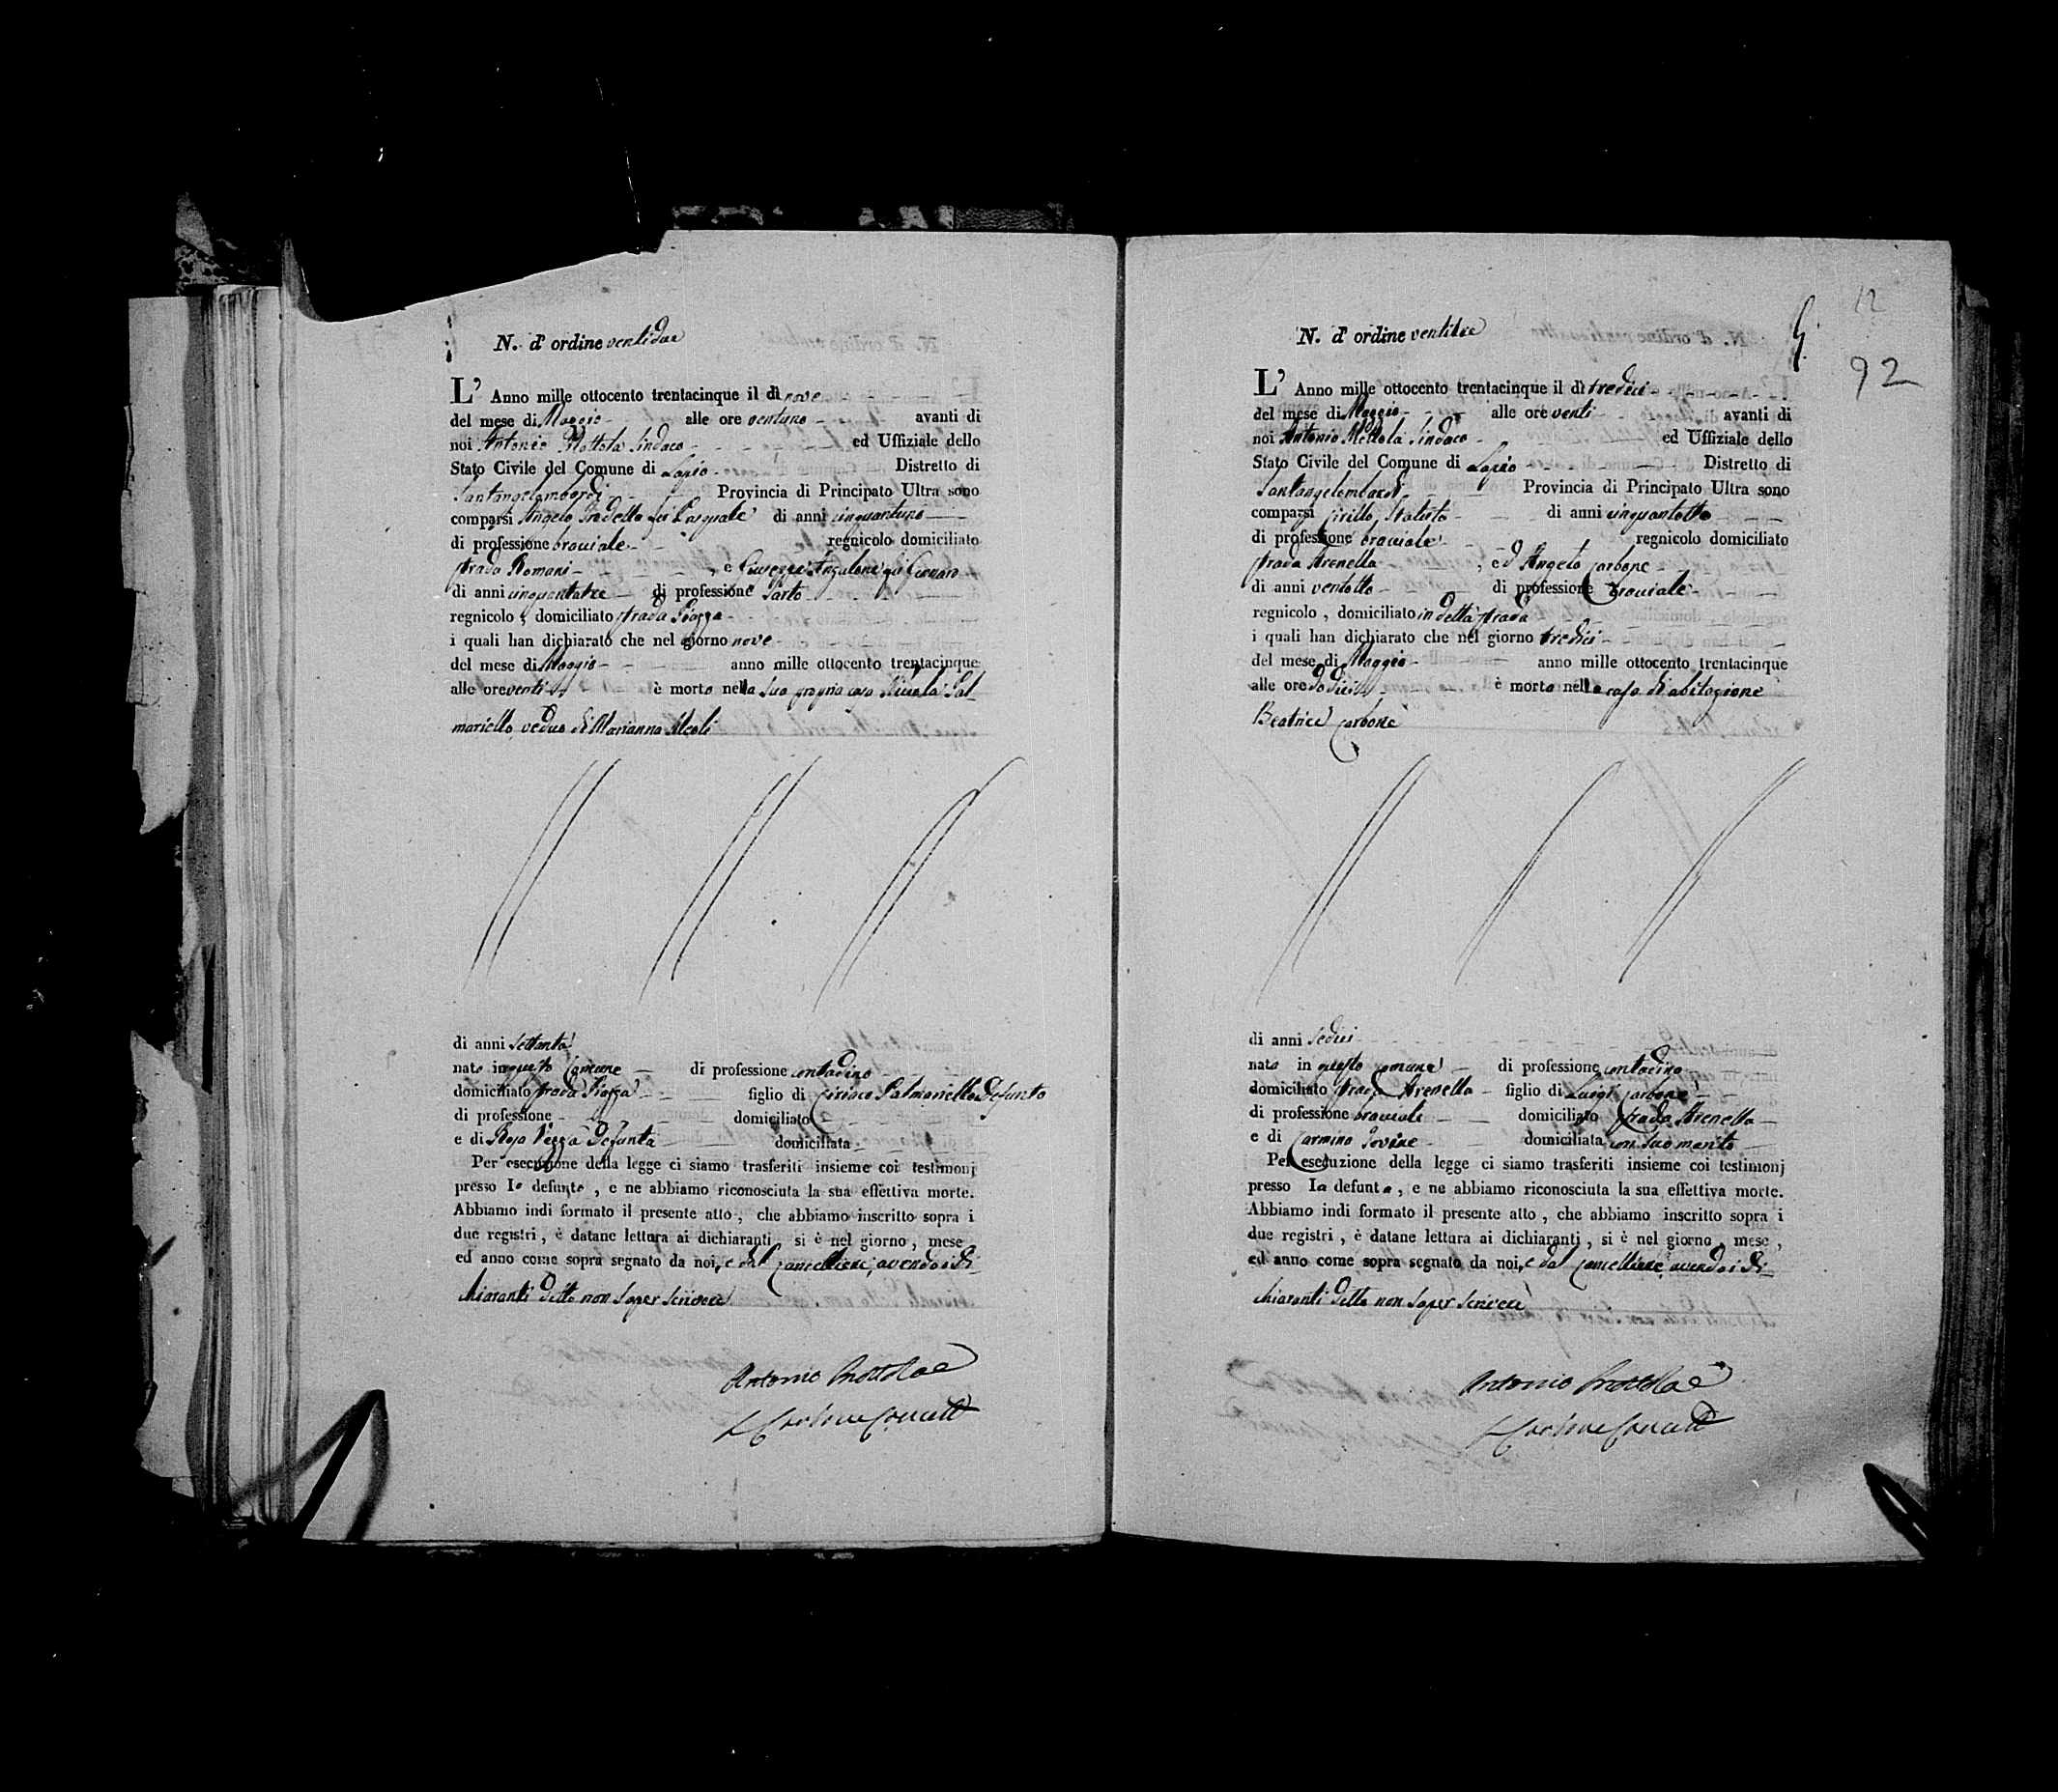 N. d' ordine ventidue
L' Anno mille ottocento trentacinque il dì nove
del mese di Maggio alle ore ventuno avanti di
noi Antonio Mottola Sindaco ed Uffiziale dello
Stato Civile del Comune di Lapio Distretto di
Santangelombardi Provincia di Principato Ultra sono
comparsi Angelo di Pasquale di anni cinquantuno
di professione bracciale regnicolo domiciliato
strada Romani , e Giuseppe Anzalone di
di anni cinquantatre di professione Sarto
regnicolo , domiciliato strada Piazza
i quali han dichiarato che nel giorno nove
del mese di Maggio anno mille ottocento trentacinque
alle ore venti è morto nella sua propria casa Nicola Pal
mariello vedovo di Marianna
di anni settanta
nato in questo Comune di professione contadino
domiciliato strada Piazza figlio di Ciriaco Palmariello defunto
di professione domiciliato
e di Rosa defunta domiciliata
Per esecuzione della legge ci siamo trasferiti insieme coi testimonj
presso lo defunto , e ne abbiamo riconosciuta la sua effettiva morte.
Abbiamo indi formato il presente atto , che abbiamo inscritto sopra i
due registri , è datane lettura ai dichiaranti si è nel giorno , mese
ed anno come sopra segnato da noi, e dal Cancelliere, avendo i di
chiaranti detto non saper scrivere
Antonio Mottola
N. d' ordine ventitre
12
92
L' Anno mille ottocento trentacinque il dì tredici
del mese di Maggio alle ore venti avanti di
noi Antonio Mottola Sindaco ed Uffiziale dello
Stato Civile del Comune di Lapio Distretto di
Santangelombardi Provincia di Principato Ultra sono
comparsi Cirillo di anni cinquantotto
di professione bracciale regnicolo domiciliato
strada Arenella , ed Angelo Carbone
di anni ventotto di professione bracciale
regnicolo , domiciliato in detta strada
i quali han dichiarato che nel giorno tredici
del mese di Maggio anno mille ottocento trentacinque
alle ore dodici è morta nella casa di abitazione
Beatrice Carbone
di anni sedici
nata in questo comune di professione contadina
domiciliato strada Arenella figlio di Luigi Carbone
di professione bracciale domiciliato strada Arenella
e di Carmina Iovine domiciliata con suo marito
Per esecuzione della legge ci siamo trasferiti insieme coi testimonj
presso la defunta , e ne abbiamo riconosciuta la sua effettiva morte.
Abbiamo indi formato il presente atto , che abbiamo inscritto sopra i
due registri , è datane lettura ai dichiaranti , si è nel giorno , mese ,
ed anno come sopra segnato da noi, e dal Cancelliere, avendo i di
chiaranti detto non saper scrivere
Antonio Mottola